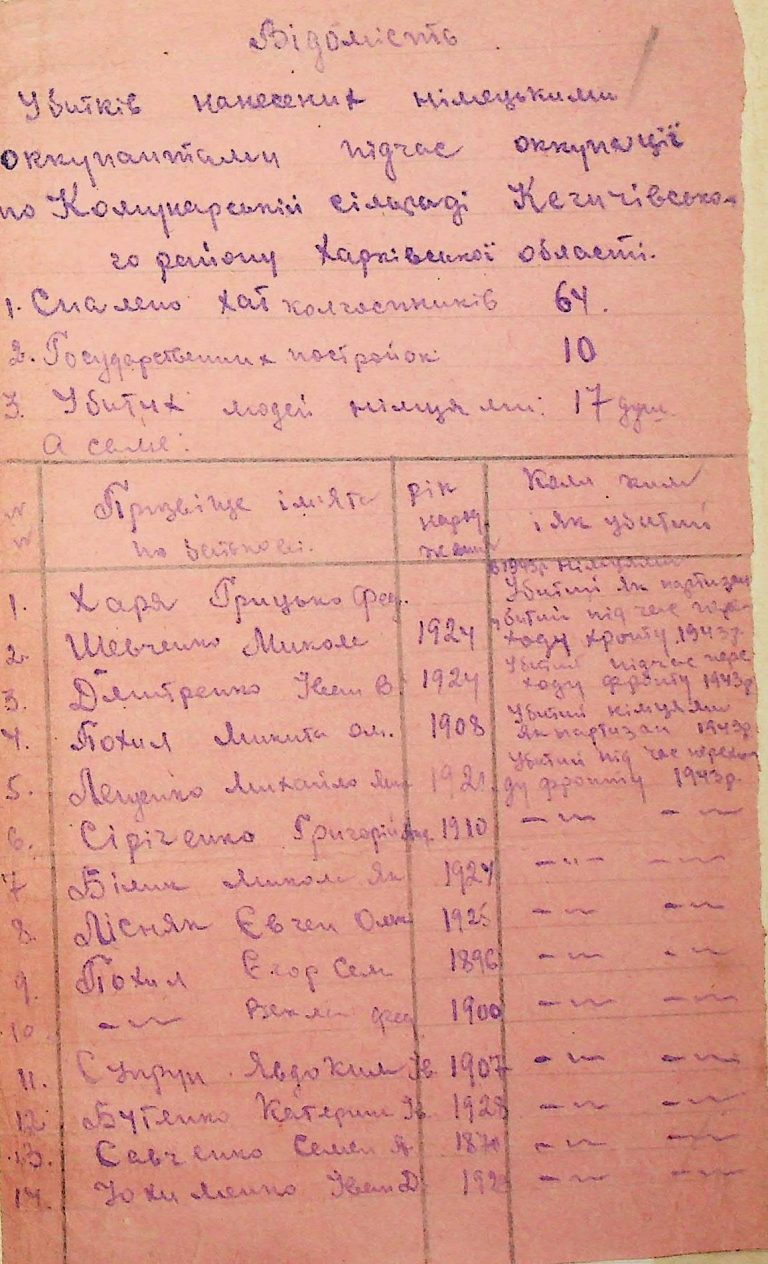 Відомість
Убитків нанесених німецькими
оккупантами підчас оккупації
по Комунарській сільраді Кегичівсько-
го району Харківської області.
1. Спалено хат колгоспників 64.
2. Государственних построек 10
3. Убитих людей німцями: 17 душ.
А саме:
№ №
Призвіще імʼята по батькові.
рік народження
Коли ким і як убитий
1. Харя Грицько Фед. в 1943р німцями Убитий як партизан
2. Шевченко Микола 1924 убитий під час пере-ходу фронту 1943р.
3. Дмитренко Іван В. 1924 Убитий підчас пере-ходу фронту 1943р
4. Похил Микита Ом. 1908 Убитий німцями як партизан 1943р.
5. Лещенко Михайло Убитий під час перехо-ду фронту 1943р.
6. Сіріченко Григорій 1910 -〃- -〃-
7 Білик Микола Як 1924 -〃- -〃-
8. Лісняк Євген 1925 -〃- -〃-
9. Похил Єгор Сем 1896 -〃- -〃-
10. -〃- Векла Фед 1900 -〃- -〃-
11. Супрун Явдоким Ів 1907 -〃- -〃-
12 Бутенко Катерина Ів. 1928 -〃- -〃-
13. Савченко Семен -〃- -〃-
14. Юхименко Іван Д. -〃- -〃-